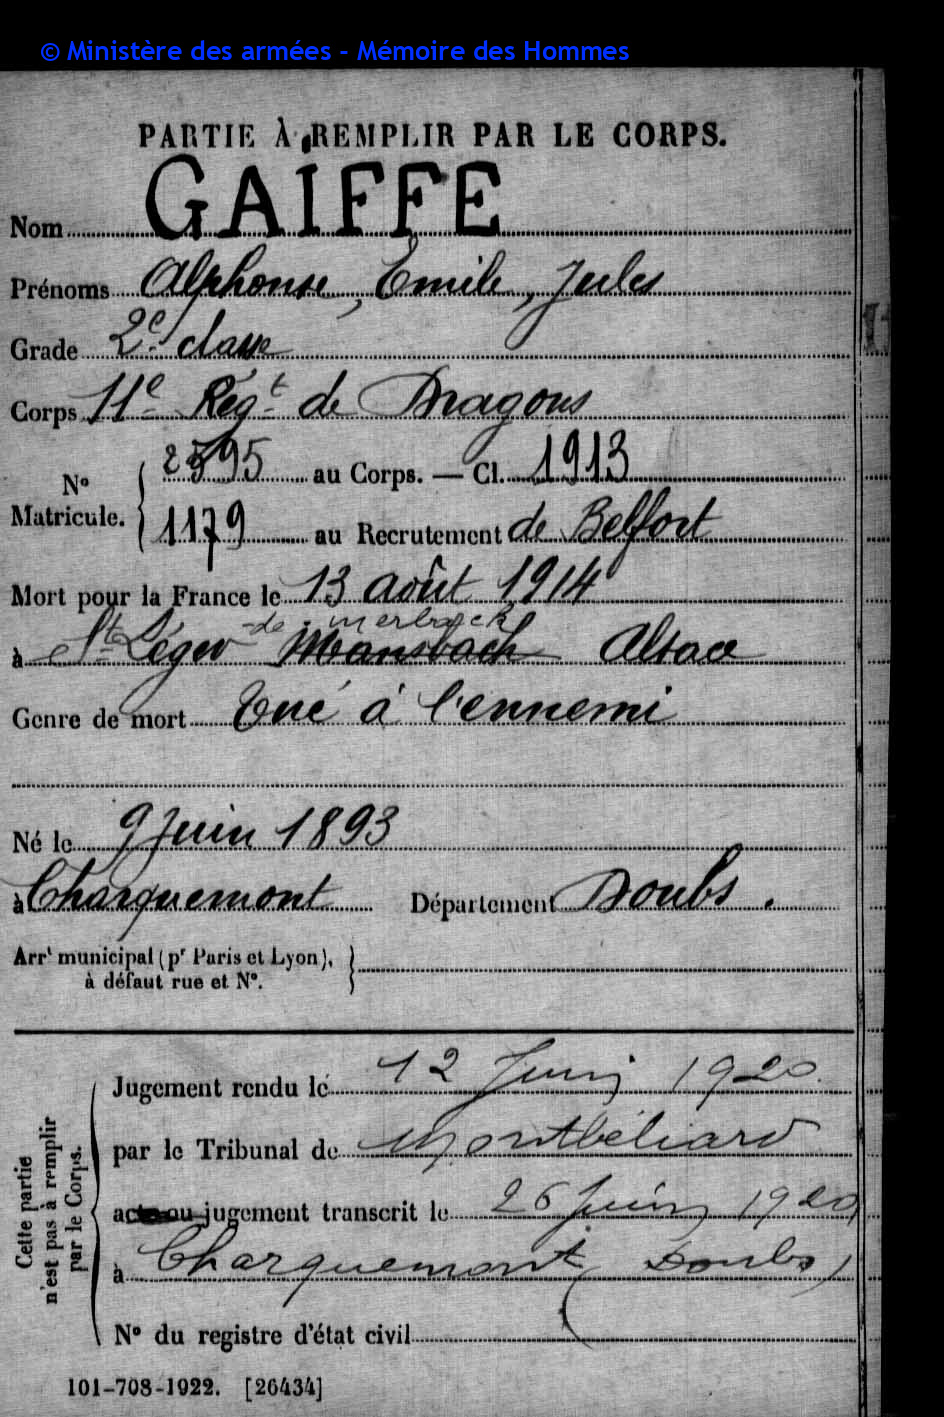 © Ministère des armées - Mémoire des Hommes
PARTIE À REMPLIR PAR LE CORPS.
Nom GAIFFE
Prénoms Alphonse, Emile, Jules
Grade 2e classe
Corps 11e Régt de Dragons
2595 au Corps. — Cl. 1913
No
Matricule.
1179 au Recrutement de Belfort
Mort pour la France le 13 août 1914
de
à St Léger Mansbach Alsace
Genre de mort Tué à l'ennemi
Né le 9 Juin 1893
à Charquemont Département Doubs.
Arrt municipal (pr Paris et Lyon),
à défaut rue et No.
Cette partie
n'est pas à remplir
par le Corps.
Jugement rendu le 12 Juin 1920
par le Tribunal de Montbéliard
acte ou jugement transcrit le 26 Juin 1920
à Charquemont (Doubs)
No du registre d'état civil
101-708-1922. [26434]